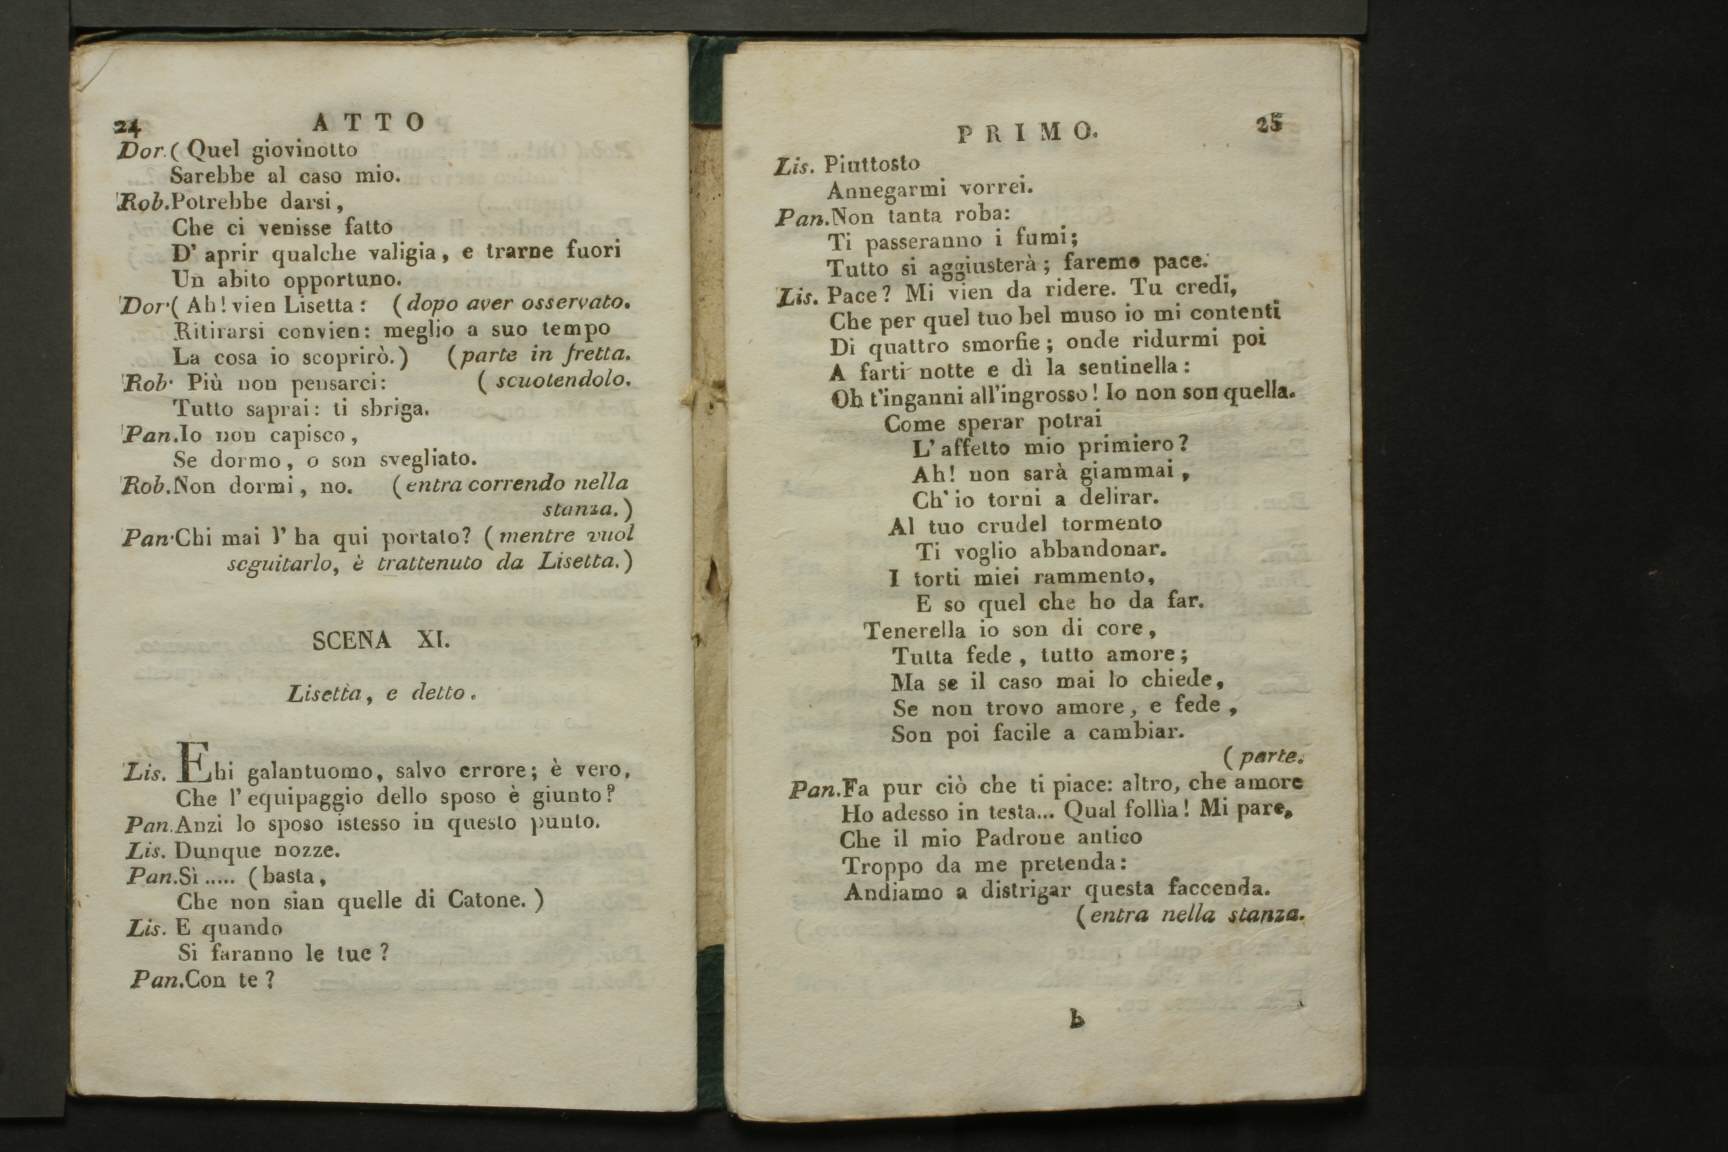 24 ATTO
Dor. ( Quel giovinotto
Sarebbe al caso mio.
Rob. Potrebbe darsi,
Che ci venisse fatto
D' aprir qualche valigia, e trarne fuori
Un abito opportuno.
Dor. ( Ah! vien Lisetta: (dopo aver osservato.
Ritirarsi convien: meglio a suo tempo
La cosa io scoprirò.) (parte in fretta.
Rob. Più non pensarci: ( scuotendolo.
Tutto saprai: ti sbriga.
Pan. Io non capisco,
Se dormo, o son svegliato.
Rob. Non dormi, no. (entra correndo nella
stanza.)
Pan. Chi mai l' ha qui portato? (mentre vuol
seguitarlo, è trattenuto da Lisetta.)
SCENA XI.
Lisetta, e detto.
Lis. Ehi galantuomo, salvo errore; è vero,
Che l' equipaggio dello sposo è giunto?
Pan. Anzi lo sposo istesso in questo punto.
Lis. Dunque nozze.
Pan. Sì ..... (basta,
Che non sian quelle di Catone. )
Lis. E quando
Si faranno le tue?
Pan. Con te?
PRIMO. 25
Lis. Piuttosto
Annegarmi vorrei.
Pan. Non tanta roba:
Ti passeranno i fumi;
Tutto si aggiusterà; faremo pace.
Lis. Pace? Mi vien da ridere. Tu credi,
Che per quel tuo bel muso io mi contenti
Di quattro smorfie; onde ridurmi poi
A farti notte e dì la sentinella:
Oh t'inganni all'ingrosso! Io non son quella.
Come sperar potrai
L' affetto mio primiero?
Ah! non sarà giammai,
Ch' io torni a delirar.
Al tuo crudel tormento
Ti voglio abbandonar.
I torti miei rammento,
E so quel che ho da far.
Tenerella io son di core,
Tutta fede, tutto amore;
Ma se il caso mai lo chiede,
Se non trovo amore, e fede,
Son poi facile a cambiar.
(parte.
Pan. Fa pur ciò che ti piace: altro, che amore
Ho adesso in testa... Qual follìa! Mi pare,
Che il mio Padrone antico
Troppo da me pretenda:
Andiamo a distrigar questa faccenda.
(entra nella stanza.
b